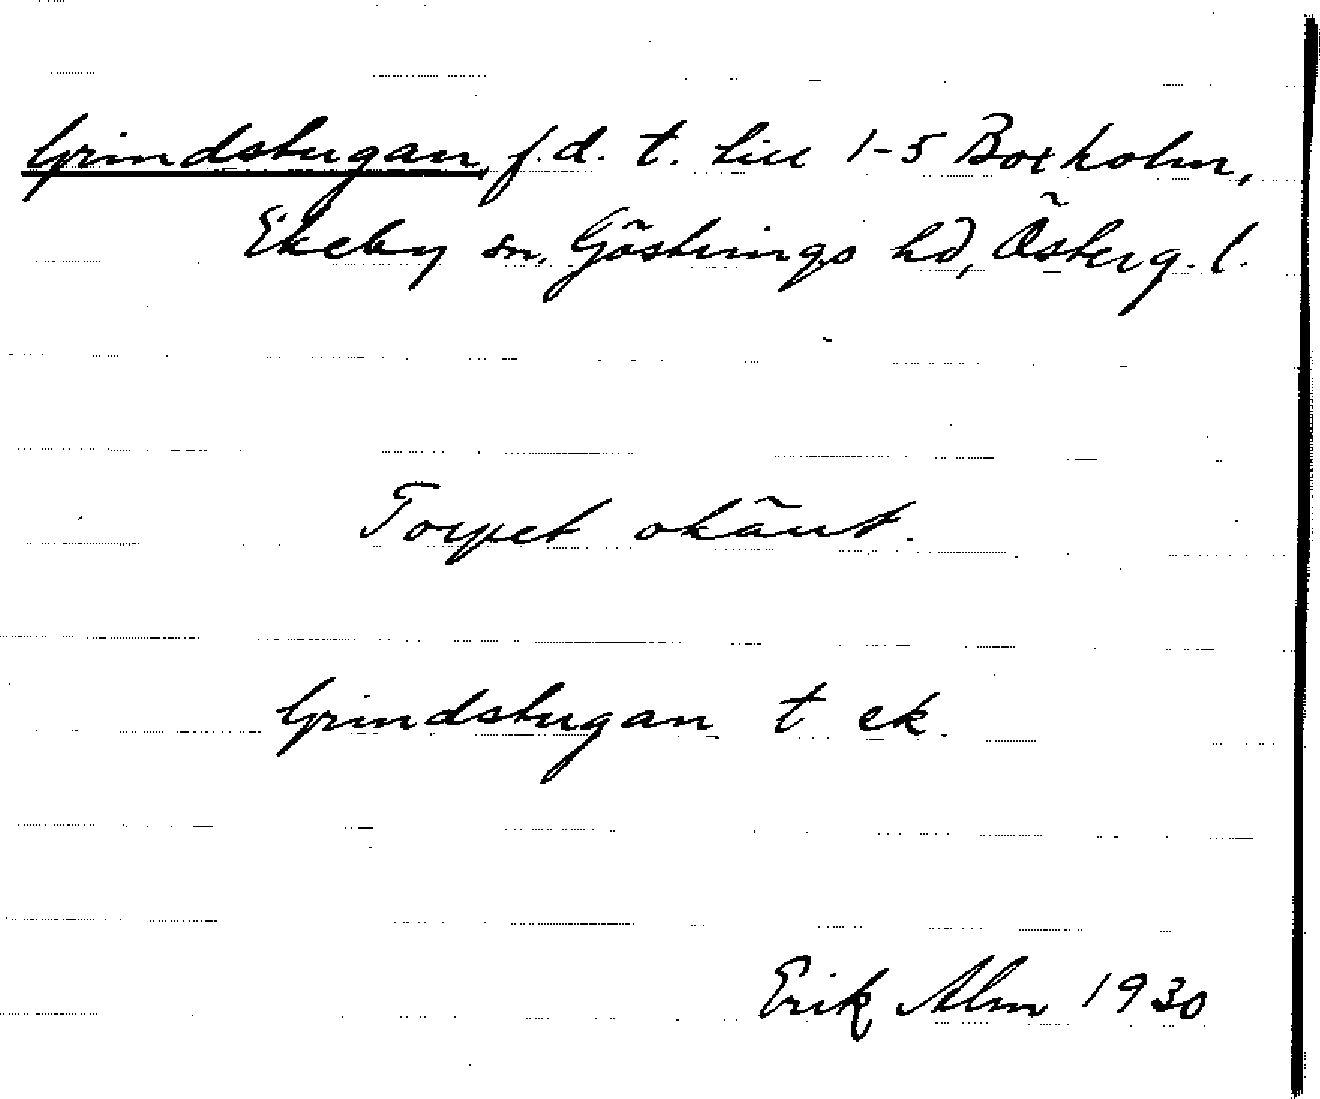 Grindstugan, f.d. t. till 1-5 Boxholm,
Ekeby sn, Göstrings hd, Österg. l.
Torpet okänt.
Grindstugan t ek.
Erik Alm 1930